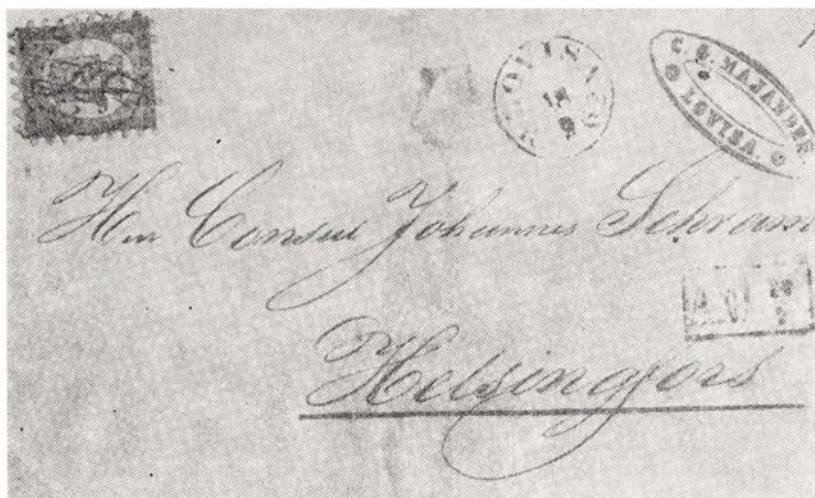 LOVISA
C. G. MAJANDER.
LOVISA.
Herr Consul Johannes Schram
Helsingfors